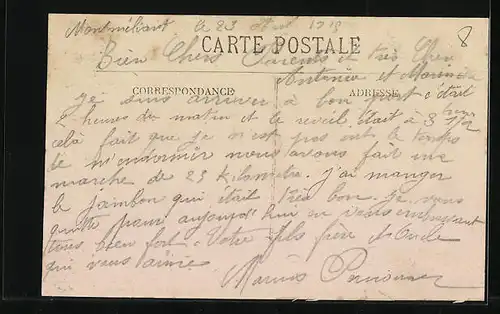 Montméliant le 23 Août 1918
8
CARTE POSTALE
Bien Chers Parents et très Cher
Antonin et
CORRESPONDANCE
ADRESSE
Je suis arriver à bon port c'était
2 heures du matin et le reveil était à 3 heures 1/2
celà fait que je n'est pas eut le temps
de m'endormir nous avons fait une
marche de 23 kilomètre. J'ai manger
le jambon qui était très bon. Je vous
quitte pour aujourd'hui en vous embrassant
tous bien fort. Votre fils frère et Oncle
qui vous aime
Marius